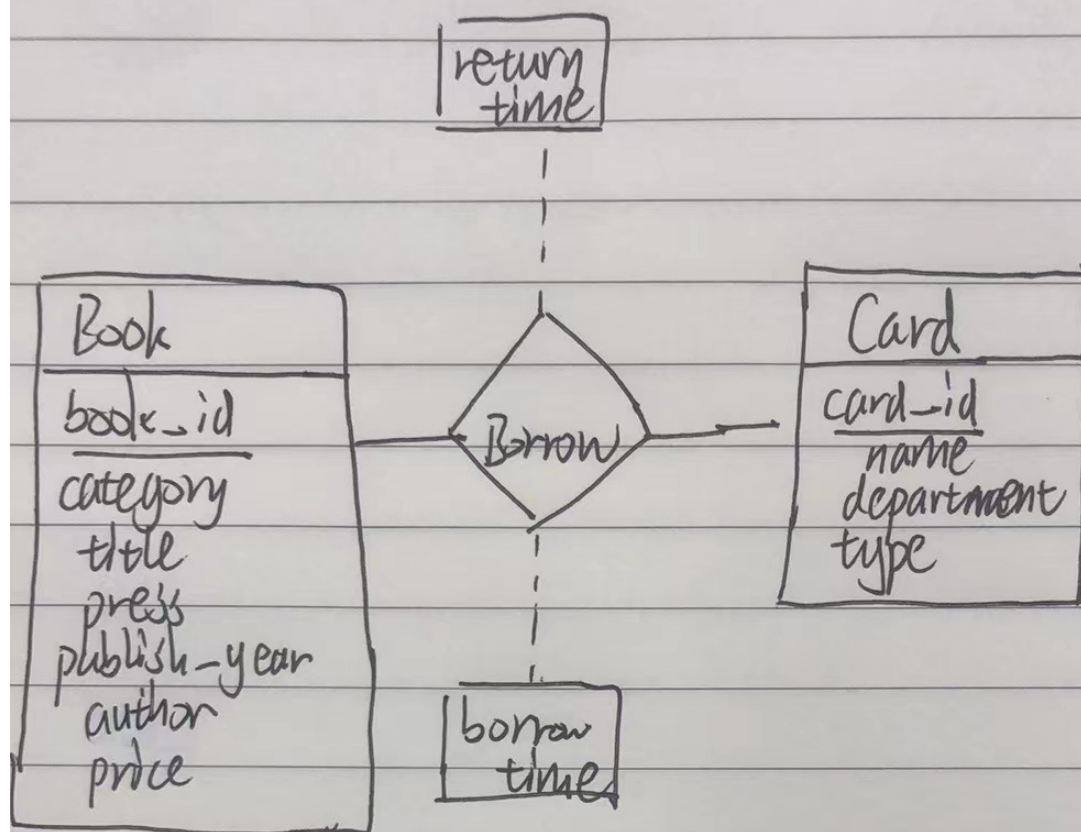 return
time
Book
book_id
category
title
press
publish_year
author
price
Borrow
Card
card_id
name
department
type
borrow
time